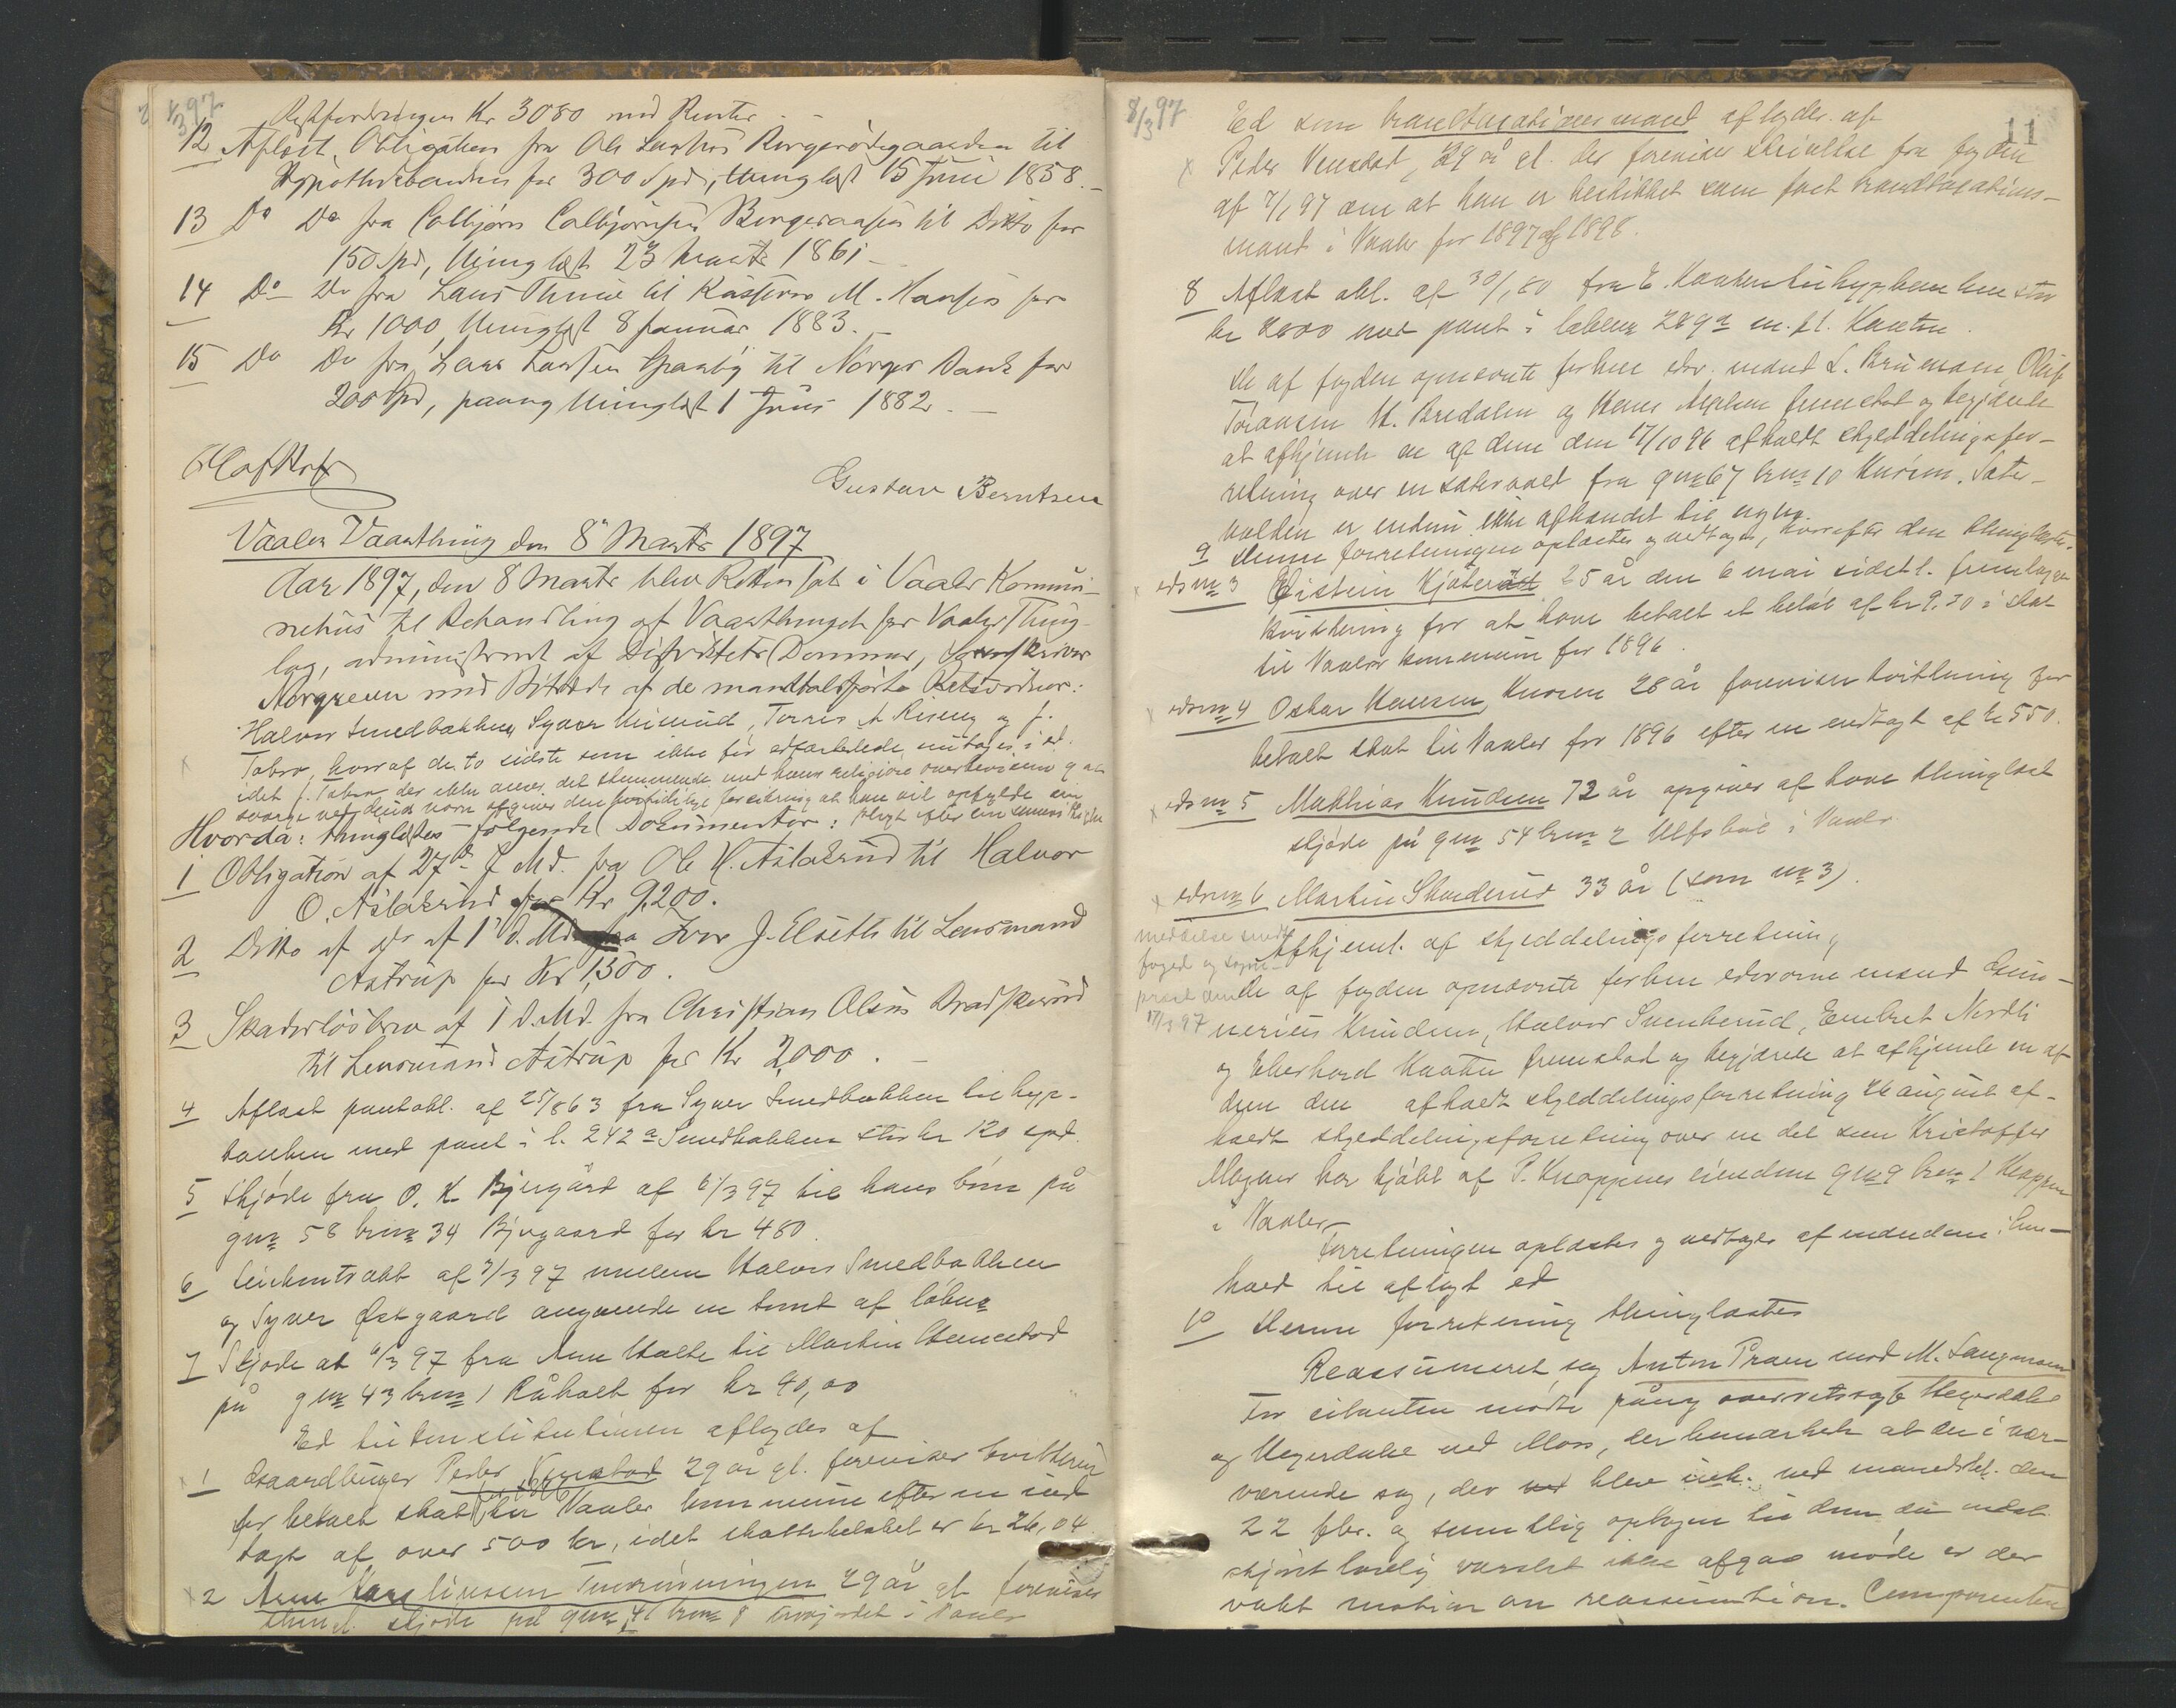 2/3 97
Restfordringen Kr 3080 med Renter
12 Aflæst Obligation fra Ole Larsen Borgeraasgaarden til
Hypothekbanken for 300 Spd, thinglæst 15 Juni 1858.
13 Do Do fra Colbjørn Colbjørnsen Borgeraasen til Ditto for
150 Spd, thinglæst 23 Marts 1861
14 Do Do fra Lars Thune til Kasserer M. Hansen for
Kr 1000, thinglæst 8 Januar 1883.
15 Do Do fra Lars Larsen Graaby til Norges Bank for
200 Spd, paany thinglæst 1 Juni 1882.
Gustav Berntsen
Vaaler Vaarthing den 8 Marts 1897
Aar 1897, den 8 Marts blev Retten sat i Vaaler Kommu-
nehus til Behandling af Vaarthinget for Vaaler Thing-
lag, administreret af Distriktets Dommer, Sorenskriver
Nørgreen med Bitræde af de mandtalsførte Retsvidner:
Halvor Smedbakken, Syver Mimrud, Torris A Riseng og J.
Tabro, hvoraf de to sidste som ikke før edfæstede, nu toges i ed
idet J. Tabro, der ikke anser det stemmende med hans religiøse overbevisning at
sværge ved Guds navn afgiver den forsikring at han vil opfylde sin
Hvorda: thinglæstes følgende Dokumenter: pligt efter
1 Obligation af 27de f. Md. fra Ole H. Aslaksrud til Halvor
O. Aslaksrud for Kr 9,200.
2 Ditto af do af 1 d. Md. fra Iver J. Elseth til Lensmand
Astrup for Kr 1,500.
3 Skadesløsbrev af 1 d. Md. fra Christian Olsen Bradskerud
til Lensmand Astrup for Kr 2,000.
4 Aflæst pantobl. af 25/8 63 fra Syver Smedbakken til hyp-
banken med pant i l. 242 a Smedbakken stor kr 120 spd.
5 Skjøde fra O. K Bjergård af 6/3 97 til hans børn på
gnr 58 brnr 34 Bjergaard for kr 480.
6 Leiekontrakt af 7/3 97 mellem Halvor Smedbakken
og Syver Østgaard angaaende en tomt af løbnr
7 Skjøde af 6/3 97 fra Anne Holte til Martin Stenestad
på gnr 43 brnr 1 Råholt for kr 40,00
Ed til konstitutionen aflagdes af
1 Gaardbruger Peder Vennstad 29 år gl. foreviser kvittering
for betalt skat for 1896 til Vaaler kommune efter en ind-
tægt af over 500 kr, idet skattebeløbet er kr 26,04
2 Arne Karelinssen 29 år gl foreviser
thingl. skjøde på gnr 41 brnr 8 i Vaaler
8/3 97
11
Ed som brandtaxationsmand aflagdes af
Peder Vennstad, 29 år gl. der foreviser skrivelse fra fogden
af 7/1 97 om at han er beskikket som fast brandtaxations-
mand i Vaaler for 1897 og 1898.
8 Aflæst obl. af 30/1 80 fra E. Kaaten til hypbanken stor
kr 2800 med pant i løbenr 289 a m. fl. Kaaten.
De af fogden opnævnte forhen edsv. mænd L. Brumoen, Oluf
Toransen N. Bredalen og Hans fremstod og begjærede
at afhjemle en af dem den 17/10 96 afholdt skylddelingsfor-
retning over en sætervold fra gnr 67 brnr 10 Knoien. Sæter-
volden er endnu ikke afhændet til nogen.
9 Denne forretningen oplæstes og vedtoges, hvorefter den thinglæstes.
eds nr 3 Eistein Kjøterød 25 år den 6 mai sidstl. fremlagde
kvittering for at have betalt et beløb af kr 9,30 i skat
til Vaaler kommune for 1896.
eds nr 4 Oskar Hansen, Knoien 28 år foreviser kvittering for
betalt skat til Vaaler for 1896 efter en indtægt af kr 550.
eds nr 5 Mathias Knudsen 72 år opgiver at have thinglæst
skjøde på gnr 54 brnr 2 Ulfsbøl i Vaaler
eds nr 6 Martin Skaderud 33 år (som nr 3).
meddelse sendt
foged og sogne-
præst
17/3 97
Afhjeml. af skylddelingsforretning
De af fogden opnævnte forhen edsvorne mænd Gun-
nerius Knudsen, Halvor Svenkerud, Embret Nordli
og Eberhard Kaaten fremstod og begjærede at afhjemle en af
dem den afholdt skylddelingsforretning 26 august af-
holdt skylddelingsforretning over en del som Kristoffer
Magnus har kjøbt af P. Knappens eiendom gnr 9 brnr 1 Knappen
i Vaaler
Forretningen oplæstes og vedtoges af mændene i hen-
hold til aflagt ed
10 Denne forretning thinglæstes
Reassumeret sag Anton Pram mod M. Langmoen
For citanten mødte påny overretssagf. Heyerdahl
og Heyerdahl ved Moss, der bemærkede at den i nær-
værende sag, der blev ved mandskl. den
22 febr. og samtlig optagen til dom da indst.
skjønt lovlig varslet ikke afgav møde er der
vakt motion om reassumtion. Comparenten